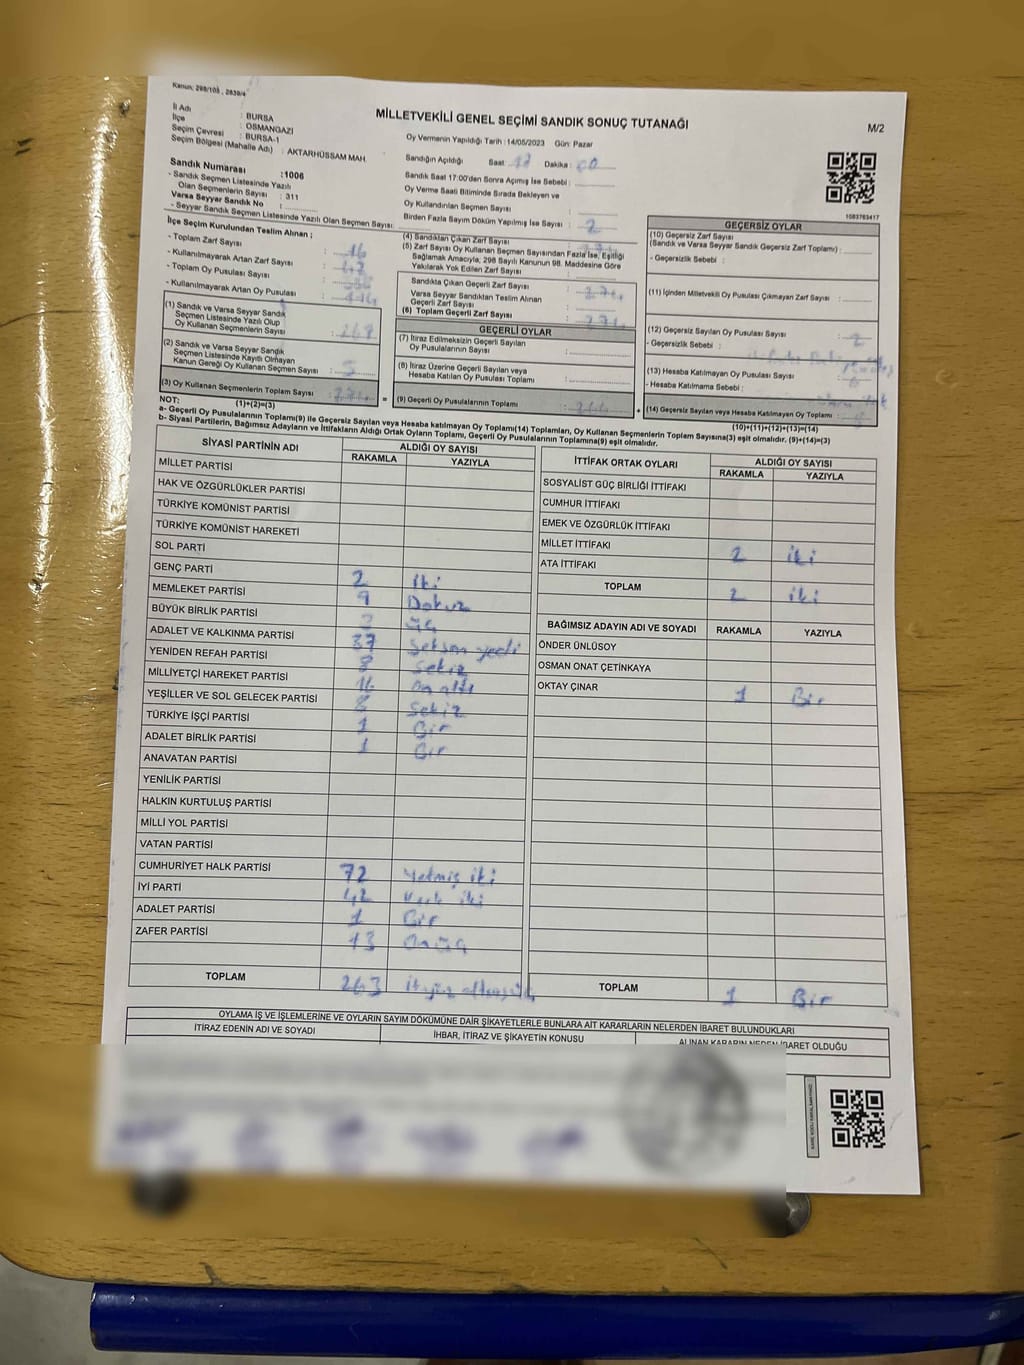 Kanun: 298/105 , 2839/4
MİLLETVEKİLİ GENEL SEÇİMİ SANDIK SONUÇ TUTANAĞI
M/2
İl Adı : BURSA
İlçe : OSMANGAZİ
Seçim Çevresi : BURSA-1
Seçim Bölgesi (Mahalle Adı) : AKTARHÜSSAM MAH.
Oy Vermenin Yapıldığı Tarih : 14/05/2023 Gün: Pazar
Sandığın Açıldığı Saat : 17 Dakika : 00
Sandık Saat 17:00'den Sonra Açımış İse Sebebi :
Oy Verme Saati Bitiminde Sırada Bekleyen ve
Oy Kullandırılan Seçmen Sayısı :
Birden Fazla Sayım Döküm Yapılmış İse Sayısı : 2
Sandık Numarası : 1006
- Sandık Seçmen Listesinde Yazılı
Olan Seçmenlerin Sayısı : 311
Varsa Seyyar Sandık No :
- Seyyar Sandık Seçmen Listesinde Yazılı Olan Seçmen Sayısı:
1083763417
İlçe Seçim Kurulundan Teslim Alınan ;
- Toplam Zarf Sayısı :
- Kullanılmayarak Artan Zarf Sayısı :
- Toplam Oy Pusulası Sayısı :
- Kullanılmayarak Artan Oy Pusulası :
(1) Sandık ve Varsa Seyyar Sandık
Seçmen Listesinde Yazılı Olup
Oy Kullanan Seçmenlerin Sayısı :
(2) Sandık ve Varsa Seyyar Sandık
Seçmen Listesinde Kayıtlı Olmayan
Kanun Gereği Oy Kullanan Seçmen Sayısı :
(3) Oy Kullanan Seçmenlerin Toplam Sayısı :
(1)+(2)=(3)
(4) Sandıktan Çıkan Zarf Sayısı
(5) Zarf Sayısı Oy Kullanan Seçmen Sayısından Fazla İse, Eşitliği
Sağlamak Amacıyla, 298 Sayılı Kanunun 98. Maddesine Göre
Yakılarak Yok Edilen Zarf Sayısı :
Sandıkta Çıkan Geçerli Zarf Sayısı : 271
Varsa Seyyar Sandıktan Teslim Alınan
Geçerli Zarf Sayısı :
(6) Toplam Geçerli Zarf Sayısı : 271
GEÇERLİ OYLAR
(7) İtiraz Edilmeksizin Geçerli Sayılan
Oy Pusulalarının Sayısı :
(8) İtiraz Üzerine Geçerli Sayılan veya
Hesaba Katılan Oy Pusulası Toplamı :
(9) Geçerli Oy Pusulalarının Toplamı :
GEÇERSİZ OYLAR
(10) Geçersiz Zarf Sayısı
(Sandık ve Varsa Seyyar Sandık Geçersiz Zarf Toplamı) :
- Geçersizlik Sebebi :
(11) İçinden Milletvekili Oy Pusulası Çıkmayan Zarf Sayısı :
(12) Geçersiz Sayılan Oy Pusulası Sayısı : 2
- Geçersizlik Sebebi :
(13) Hesaba Katılmayan Oy Pusulası Sayısı :
- Hesaba Katılmama Sebebi :
(14) Geçersiz Sayılan veya Hesaba Katılmayan Oy Toplamı :
(10)+(11)+(12)+(13)=(14)
NOT:
a- Geçerli Oy Pusulalarının Toplamı(9) ile Geçersiz Sayılan veya Hesaba Katılmayan Oy Toplamı(14) Toplamları, Oy Kullanan Seçmenlerin Toplam Sayısına(3) eşit olmalıdır. (9)+(14)=(3)
b- Siyasi Partilerin, Bağımsız Adayların ve İttifakların Aldığı Ortak Oyların Toplamı, Geçerli Oy Pusulalarının Toplamına(9) eşit olmalıdır.
SİYASİ PARTİNİN ADI ALDIĞI OY SAYISI
RAKAMLA YAZIYLA
MİLLET PARTİSİ
HAK VE ÖZGÜRLÜKLER PARTİSİ
TÜRKİYE KOMÜNİST PARTİSİ
TÜRKİYE KOMÜNİST HAREKETİ
SOL PARTİ
GENÇ PARTİ 2 iki
MEMLEKET PARTİSİ 9 Dokuz
BÜYÜK BİRLİK PARTİSİ 3 üç
ADALET VE KALKINMA PARTİSİ 37 Seksen yedi
YENİDEN REFAH PARTİSİ 8 Sekiz
MİLLİYETÇİ HAREKET PARTİSİ 16 On altı
YEŞİLLER VE SOL GELECEK PARTİSİ 8 Sekiz
TÜRKİYE İŞÇİ PARTİSİ 1 Bir
ADALET BİRLİK PARTİSİ 1 Bir
ANAVATAN PARTİSİ
YENİLİK PARTİSİ
HALKIN KURTULUŞ PARTİSİ
MİLLİ YOL PARTİSİ
VATAN PARTİSİ
CUMHURİYET HALK PARTİSİ 72 Yetmiş iki
İYİ PARTİ 42 Kırk iki
ADALET PARTİSİ 1 Bir
ZAFER PARTİSİ 13 Onüç
TOPLAM 263 ikiyüz altmışüç
İTTİFAK ORTAK OYLARI ALDIĞI OY SAYISI
RAKAMLA YAZIYLA
SOSYALİST GÜÇ BİRLİĞİ İTTİFAKI
CUMHUR İTTİFAKI
EMEK VE ÖZGÜRLÜK İTTİFAKI
MİLLET İTTİFAKI 2 iki
ATA İTTİFAKI
TOPLAM 2 iki
BAĞIMSIZ ADAYIN ADI VE SOYADI RAKAMLA YAZIYLA
ÖNDER ÜNLÜSOY
OSMAN ONAT ÇETİNKAYA
OKTAY ÇINAR 1 Bir
TOPLAM 1 Bir
OYLAMA İŞ VE İŞLEMLERİNE VE OYLARIN SAYIM DÖKÜMÜNE DAİR ŞİKAYETLERLE BUNLARA AİT KARARLARIN NELERDEN İBARET BULUNDUKLARI
İTİRAZ EDENİN ADI VE SOYADI İHBAR, İTİRAZ VE ŞİKAYETİN KONUSU ALINAN KARARIN NEDEN İBARET OLDUĞU